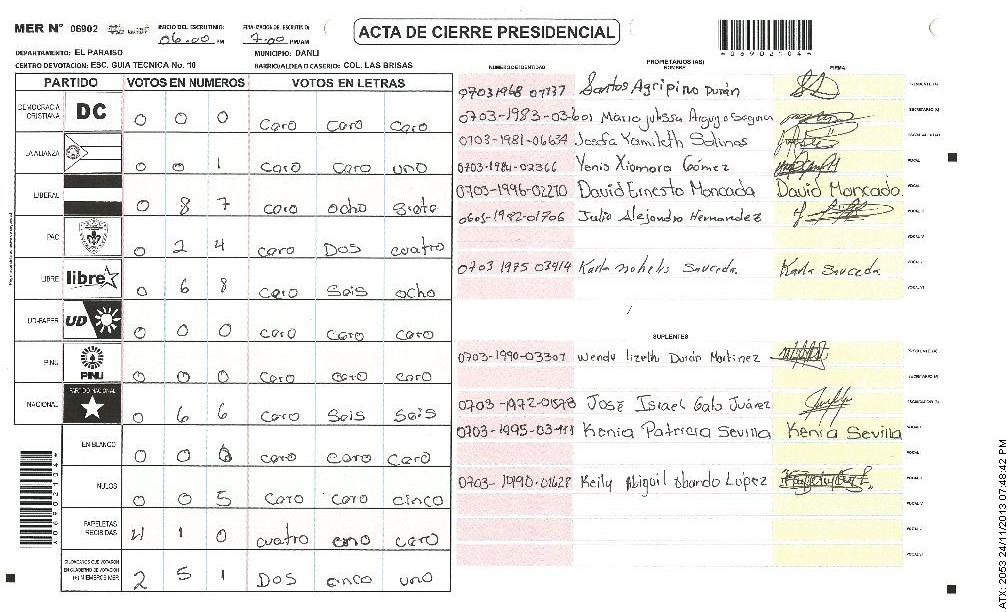 MER N° 06902
INICIO DEL ESCRUTINIO
06:00 PM
FINALIZACION DEL ESCRUTINIO
7:00 PM/AM
ACTA DE CIERRE PRESIDENCIAL
*06902104*
DEPARTAMENTO: EL PARAISO
MUNICIPIO: DANLI
CENTRO DE VOTACION: ESC. GUIA TECNICA No. 10
BARRIO/ALDEA O CASERIO: COL. LAS BRISAS
PARTIDO VOTOS EN NUMEROS VOTOS EN LETRAS
DEMOCRACIA CRISTIANA DC 0 0 0 cero cero cero
LA ALIANZA 0 0 1 cero cero uno
LIBERAL 0 8 7 cero ocho siete
PAC 0 2 4 cero Dos cuatro
LIBRE libre 0 6 8 cero seis ocho
UD-FAPER UD 0 0 0 cero cero cero
PINU PINU 0 0 0 cero cero cero
NACIONAL PARTIDO NACIONAL 0 6 6 cero seis seis
EN BLANCO 0 0 0 cero cero cero
NULOS 0 0 5 cero cero cinco
PAPELETAS RECIBIDAS 4 1 0 cuatro uno cero
CIUDADANOS QUE VOTARON EN CUADERNO DE VOTACION (+) MIEMBROS MER 2 5 1 Dos cinco uno
*06902104*
PROPIETARIOS (AS)
NUMERO DE IDENTIDAD NOMBRE FIRMA
0703 1968 07137 Santos Agripino Durán
0703-1983-03601 Maria
0703-1981-06634 Josefa Yamileth Salinas
0703-1984-02366 Yenis Xiomara Gómez
0703-1996-02270 David Ernesto Moncada David Moncada
0605-1982-01706 Julio Alejandro Hernandez
0703 1975 03414 Karla sauceda. Karla sauceda
SUPLENTES
0703-1990-03307 Wendy lizeth Durán Martinez
0703-1972-01578 José Israel Galo Juárez
0703-1995-03411 Kenia Patricia Sevilla Kenia Sevilla
0703-1990-01628 Keily Abigail Obando López
ATX: 2053 24/11/2013 07:48:42 PM